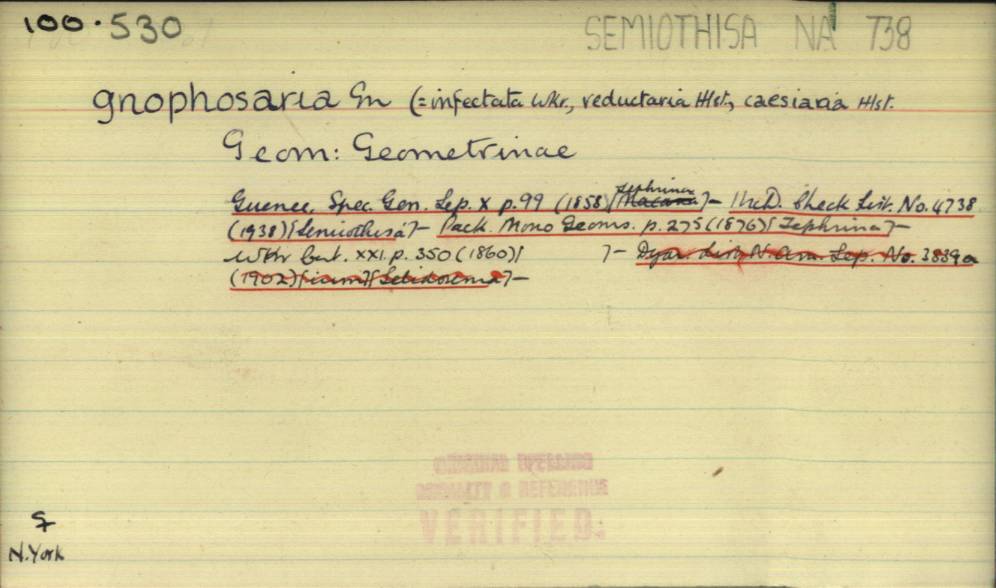 100.530
SEMIOTHISA NA 738
gnophosaria Gn (= infectata Wkr., reductaria Hlst., caesiaria Hlst.
Geom: Geometrinae
Guenee. Spec. Gen. Lep. X p.99 (1858) [Macaria Tephrina] - McD. Check List. No. 4738
(1938) [Semiothisa] - Pack. Mono Geoms. p. 275 (1876) [Tephrina] -
Wkr but. XXI. p. 350 (1860) [ ] - Dyar. List, N. Am. Lep. No. 3839a
(1902) [Selidosema] -
TYPE & REFERENCE
VERIFIED.
♀
N. York